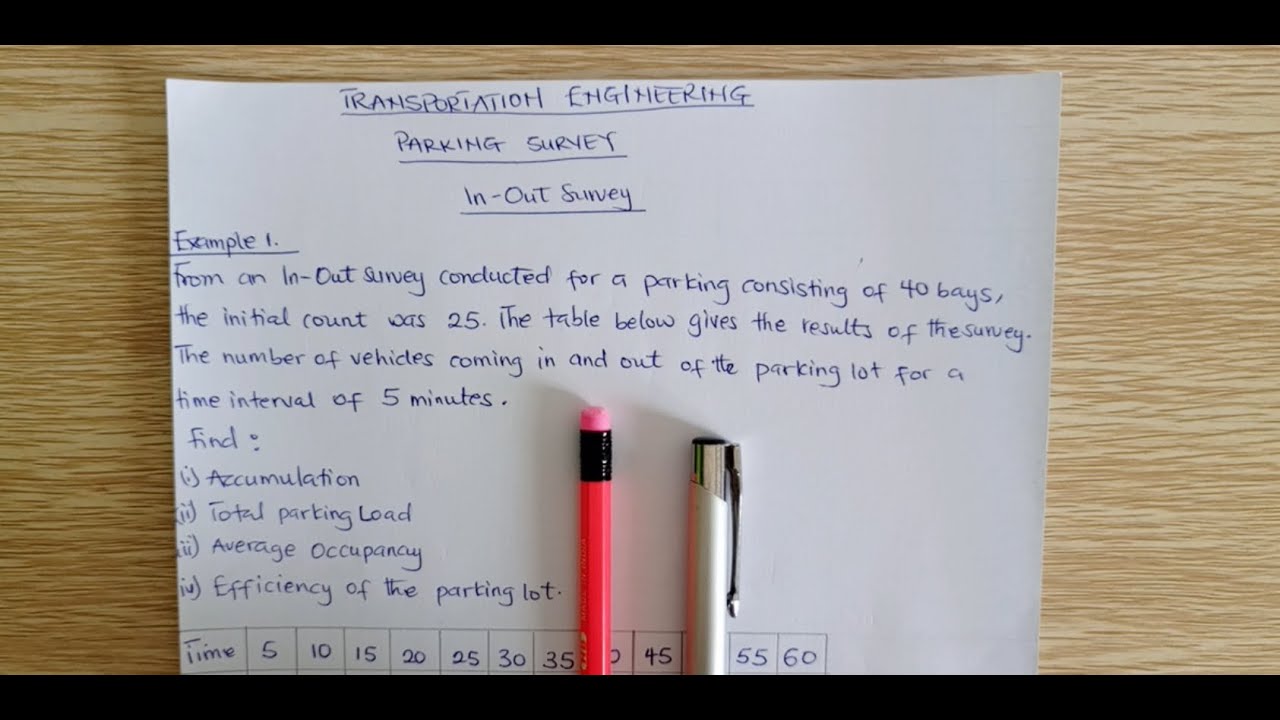 TRANSPORTATION ENGINEERING
PARKING SURVEY
In-Out Survey
Example 1.
From an In-Out survey conducted for a parking consisting of 40 bays,
the initial count was 25. The table below gives the results of the survey.
The number of vehicles coming in and out of the parking lot for a
time interval of 5 minutes.
find:
(i) Accumulation
(ii) Total parking Load
(iii) Average Occupancy
(iv) Efficiency of the parking lot.
Time 5 10 15 20 25 30 35 45 55 60
MADE IN INDIA